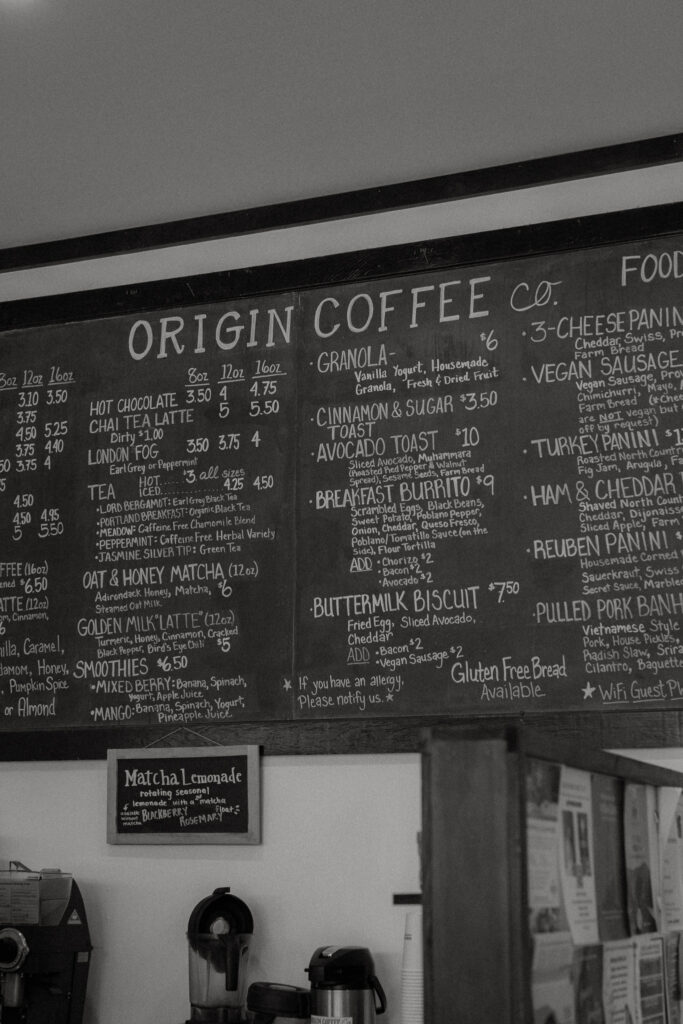 ORIGIN COFFEE CO.
FOOD
8oz 12oz 16oz
3.10 3.50
3.75
4.50 5.25
3.75 4.40
3.75 4
4.50
4.50 4.95
5 5.50
(16oz
$6.50
(12oz
Caramel,
Honey,
Pumpkin Spice
or Almond
8oz 12oz 16oz
HOT CHOCOLATE 3.50 4 4.75
CHAI TEA LATTE 5 5.50
Dirty $1.00
LONDON FOG 3.50 3.75 4
Earl Grey or Peppermint
TEA HOT $3, all sizes
ICED 4.25 4.50
• LORD BERGAMOT: Earl Grey Black Tea
• PORTLAND BREAKFAST: Organic Black Tea
• MEADOW: Caffeine Free Chamomile Blend
• PEPPERMINT: Caffeine Free Herbal Variety
• JASMINE SILVER TIP: Green Tea
OAT & HONEY MATCHA (12oz)
Adirondack Honey, Matcha, $6
Steamed Oat Milk
GOLDEN MILK "LATTE" (12oz)
Turmeric, Honey, Cinnamon, Cracked
Black Pepper, Bird's Eye Chili $5
SMOOTHIES $6.50
• MIXED BERRY: Banana, Spinach,
Yogurt, Apple Juice
• MANGO: Banana, Spinach, Yogurt,
Pineapple Juice
• GRANOLA - $6
Vanilla Yogurt, Housemade
Granola, Fresh & Dried Fruit
• CINNAMON & SUGAR $3.50
TOAST
• AVOCADO TOAST $10
Sliced Avocado, Muhammara
(Roasted Red Pepper & Walnut
Spread), Sesame Seeds, Farm Bread
• BREAKFAST BURRITO $9
Scrambled Eggs, Black Beans,
Sweet Potato, Poblano Pepper,
Onion, Cheddar, Queso Fresco,
Poblano/Tomatillo Sauce (on the
side), Flour Tortilla
ADD • Chorizo $2
• Bacon $2
• Avocado $2
• BUTTERMILK BISCUIT $7.50
Fried Egg, Sliced Avocado,
Cheddar
ADD • Bacon $2
• Vegan Sausage $2
★ If you have an allergy,
Please notify us. ★
Gluten Free Bread
Available.
• 3-CHEESE PANINI
Cheddar, Swiss,
Farm Bread
• VEGAN SAUSAGE
Vegan Sausage,
Chimichurri, Mayo,
Farm Bread
are NOT vegan but
off by request)
• TURKEY PANINI
Roasted North Country
Fig Jam, Arugula,
• HAM & CHEDDAR
Shaved North
Cheddar, Dijonnaise
Sliced Apple, Farm
• REUBEN PANINI $
Housemade Corned
Sauerkraut, Swiss
Secret Sauce,
• PULLED PORK
Vietnamese Style
Pork, House Pickles,
Radish Slaw,
Cilantro, Baguette
★ WiFi Guest
Matcha Lemonade
rotating seasonal
lemonade with a matcha
float
available without matcha
BLACKBERRY
ROSEMARY